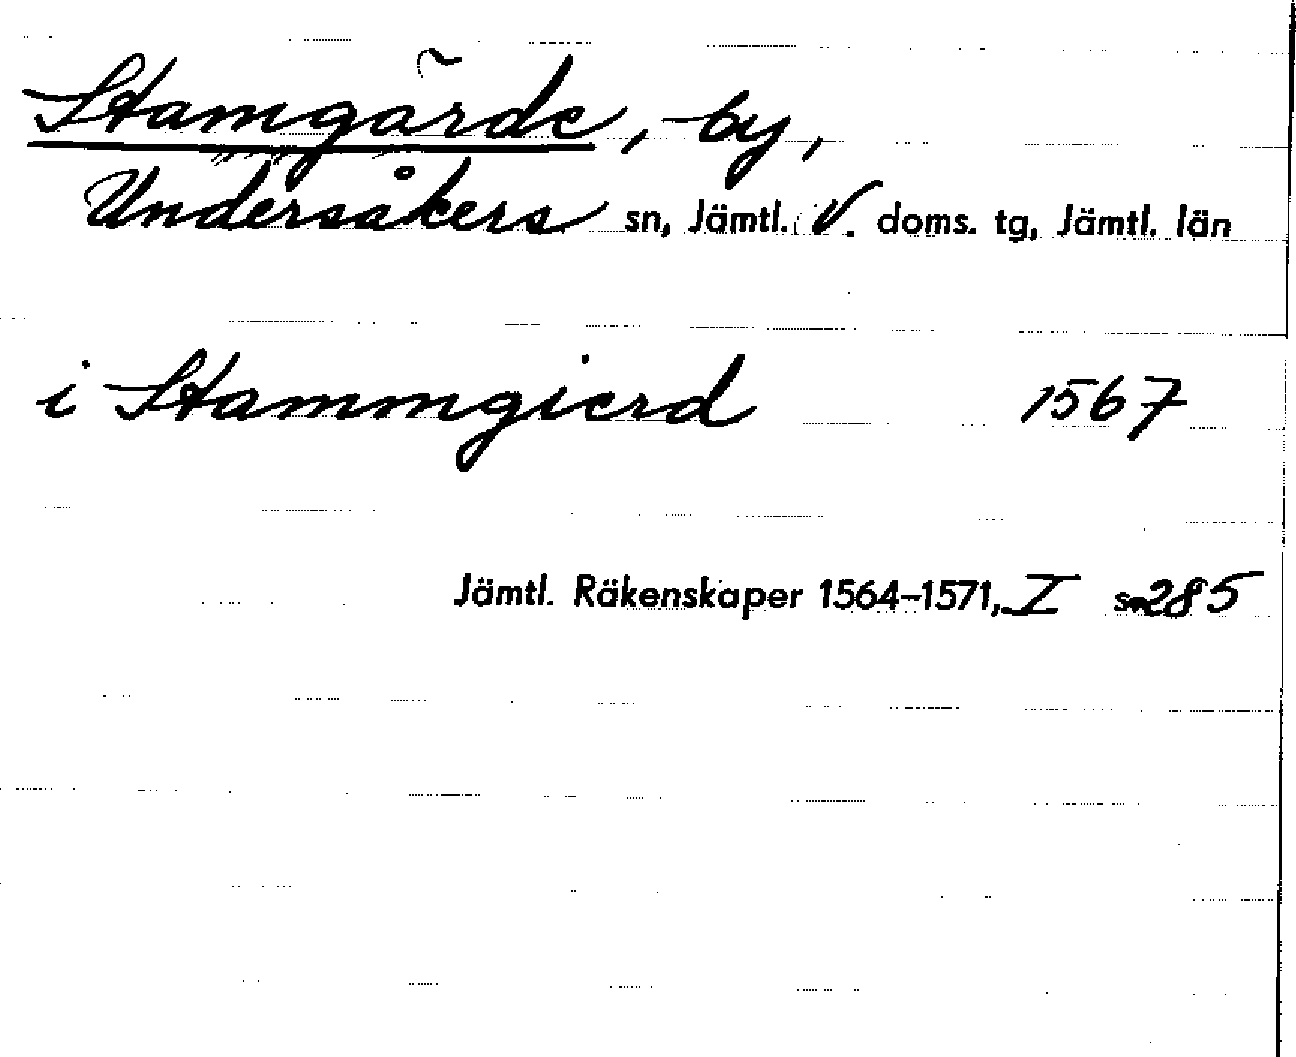 Stamgärde, by,
Undersåkers sn, Jämtl. V. doms. tg, Jämtl. län
i Stammgierd 1567
Jämtl. Räkenskaper 1564–1571, I s. 285